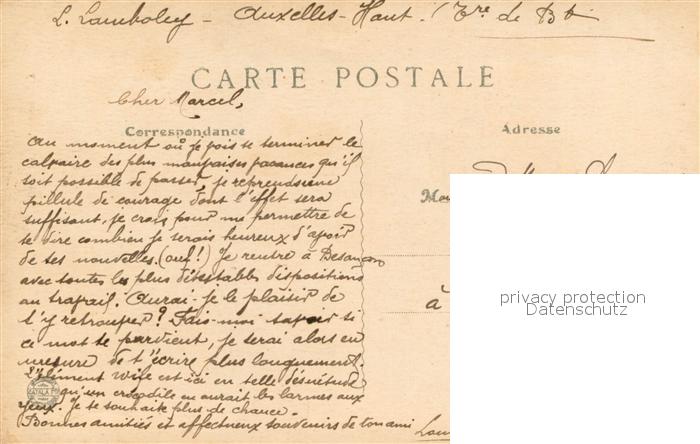 L. Lamboley - Auxelles-Haut. (Tre de Bt
CARTE POSTALE
Cher Marcel,
Correspondance
Adresse
Au moment où je vois se terminer le
calvaire des plus mauvaises vacances qu'il
soit possible de passer, je reprends une
pillule de courage dont l'effet sera
suffisant, je crois pour me permettre de
te dire combien je serais heureux d'avoir
de tes nouvelles. (ouf!) Je rentre à Besançon
avec toutes les plus détestables dispositions
au travail. Aurai-je le plaisir de
t'y retrouver? Fais-moi savoir si
ce mot te parvient, je serai alors en
mesure de t'écrire plus longuement.
L'élément est ici en telle désuétude
qu'un crocodile en aurait les larmes aux
yeux. Je te souhaite plus de chance.
Bonnes amitiés et affectueux souvenirs de ton ami
à
privacy protection
Datenschutz